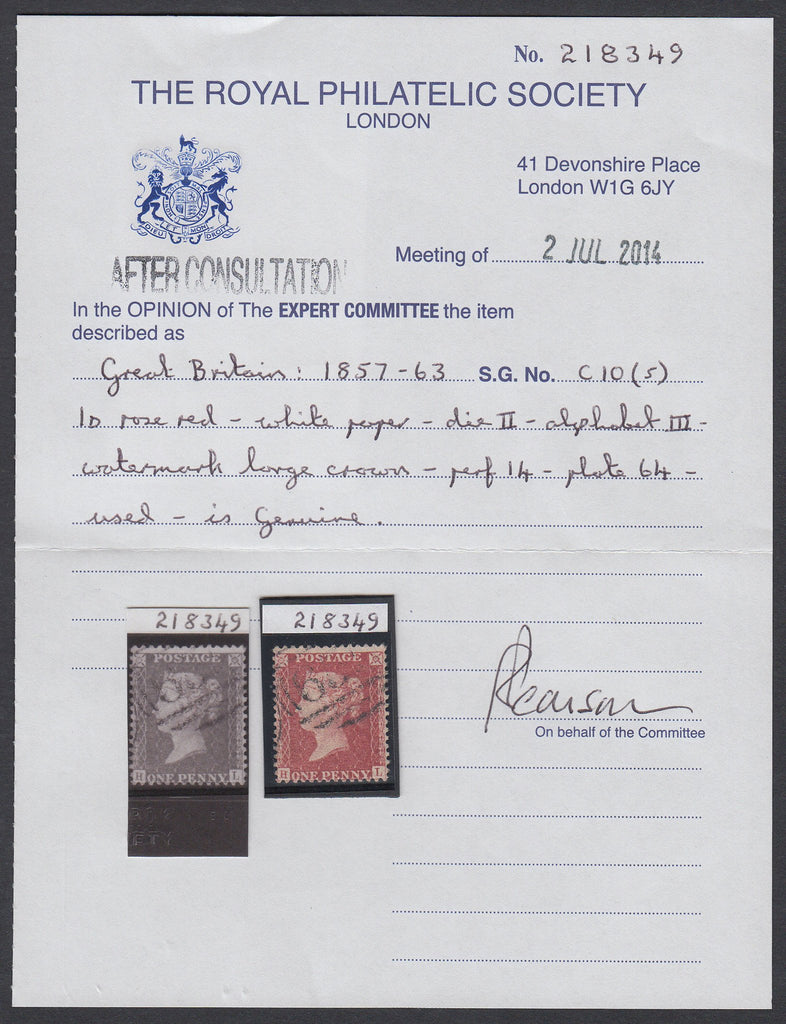 No. 218349
THE ROYAL PHILATELIC SOCIETY
LONDON
41 Devonshire Place
London W1G 6JY
DIEU ET MON DROIT
Meeting of 2 JUL 2014
AFTER CONSULTATION
In the OPINION of The EXPERT COMMITTEE the item
described as
Great Britain: 1857-63 S.G. No. C10(5)
1D rose red - white paper - die II - alphabet III -
watermark large crown - perf 14 - plate 64 -
used - is Genuine.
218349
218349
POSTAGE
POSTAGE
H ONE PENNY L
H ONE PENNY L
ETY
Pearson
On behalf of the Committee